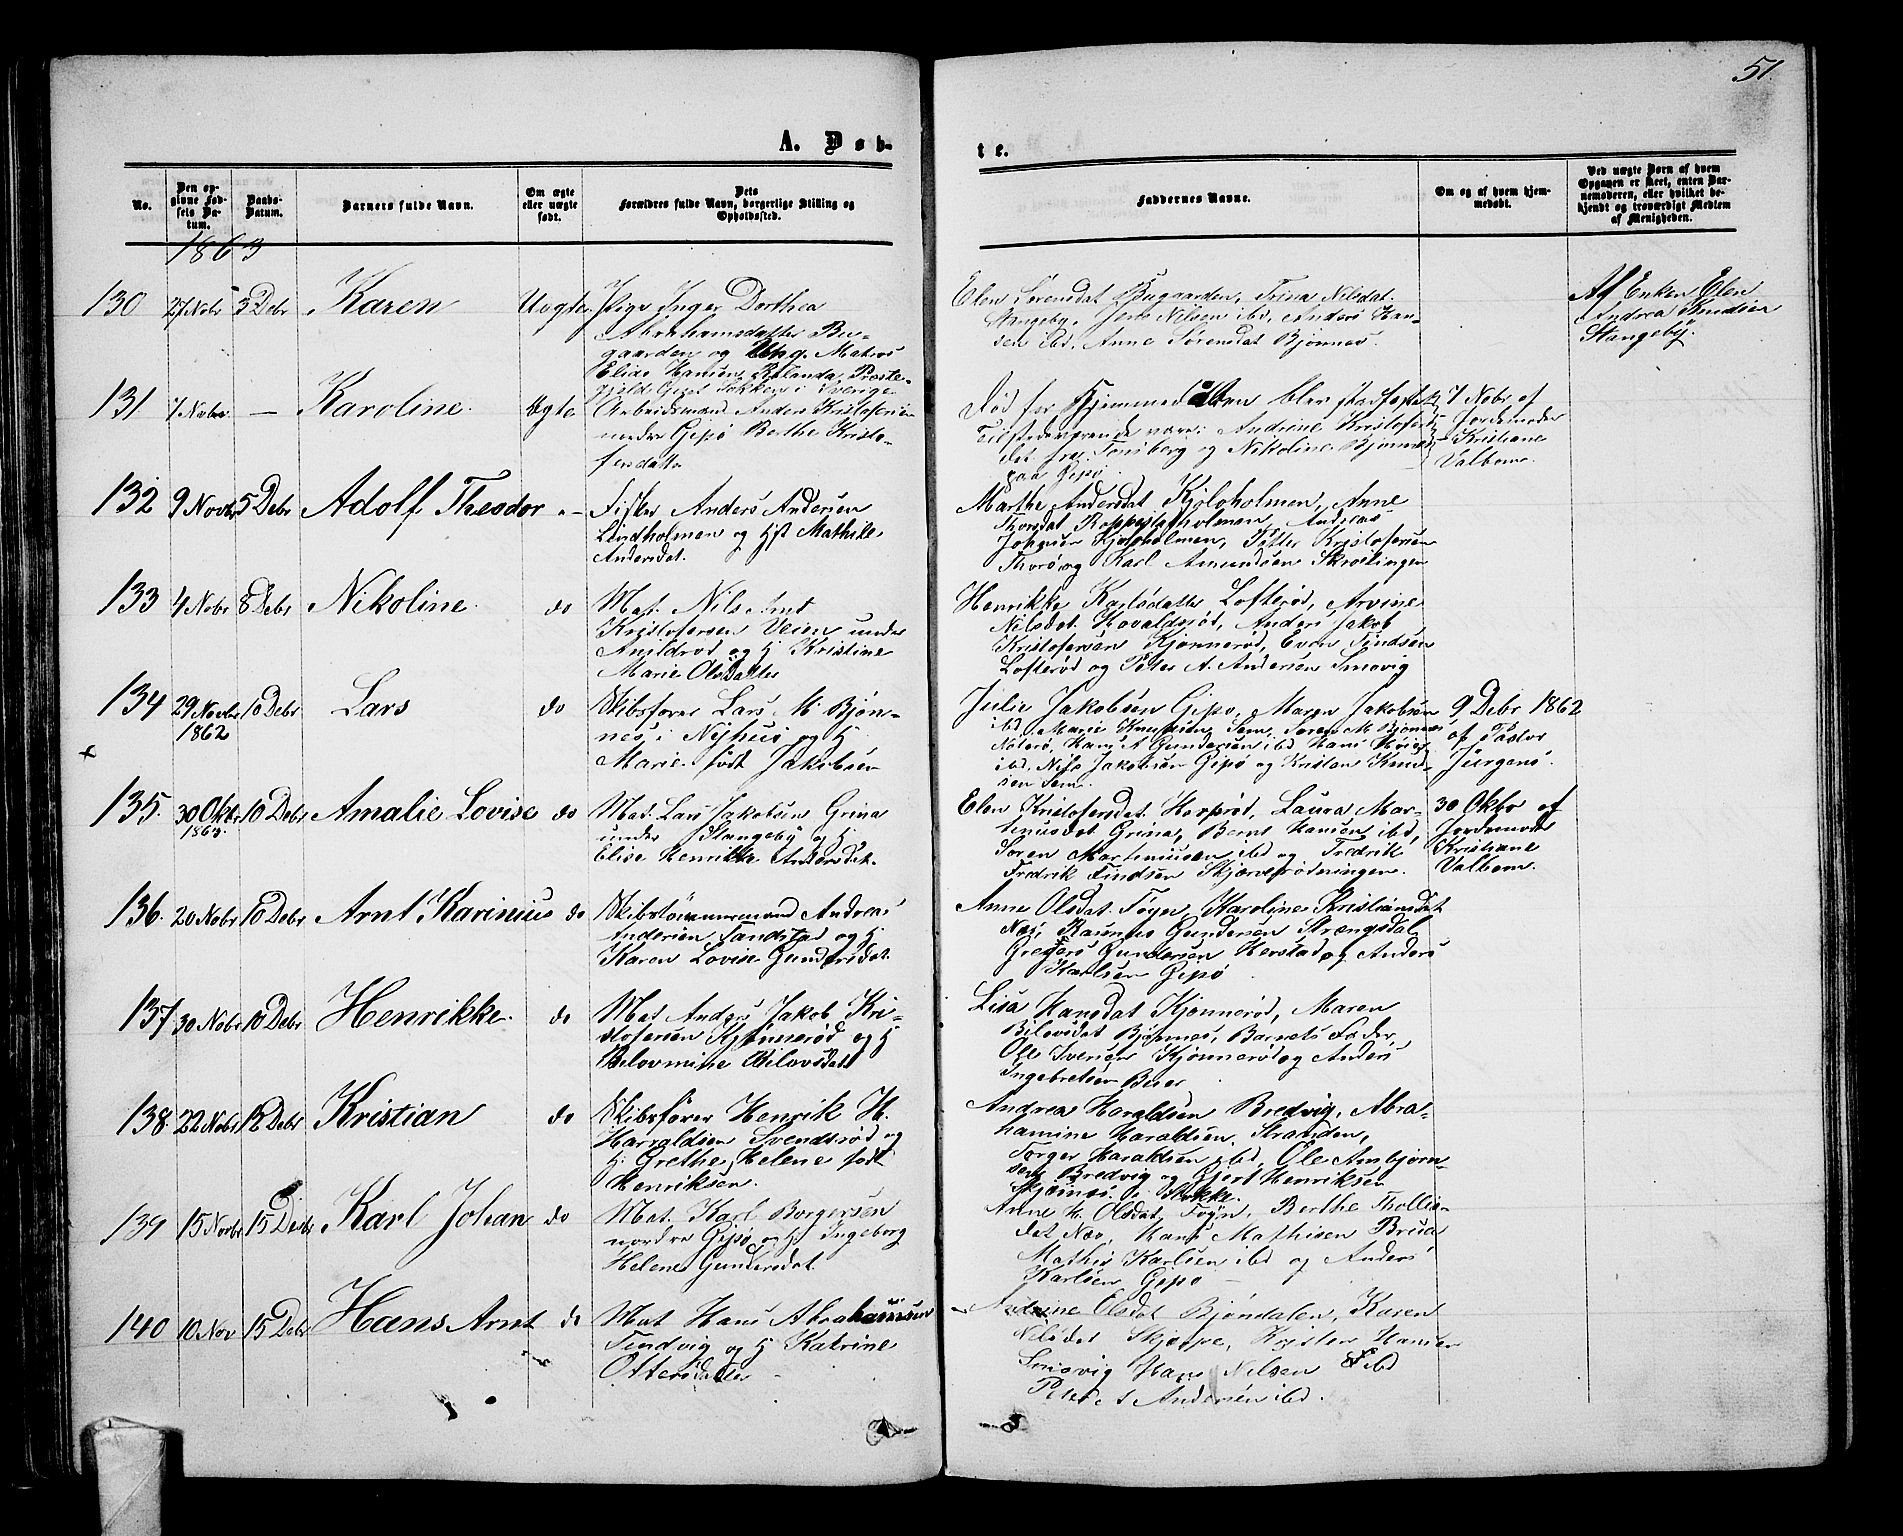 51.
A. Døb-
te.
No.
Den op-
givne Fød-
sels Da-
tum.
Daabs-
Datum.
Barnets fulde Navn.
Om ægte
eller uægte
født.
Dets
Forældres fulde Navn, borgerlige Stilling og
Opholdssted.
Faddernes Navne.
Om og af hvem hjem-
medøbt.
Ved uægte Born af hvem
Opgaven er skeet, enten Bar-
nemoderen, eller hvilket be-
kjendt og troværdigt Medlem
af Menigheden.
1863
130 27 Nobr 3 Debr Karen Uægte Pige Inger Dorthea
Abrahamsdatter Bu-
gaarden og Ung. Matros
Elias Hansen, Rolanda Præste-
gjeld Sokken i Sverige
Elen Sørensdat Bugaarden, Trina Nilsdat.
Stangeby, Jens Nilsen ibd, Anders Han-
sen ibd, Anne Sørensdat Bjønnes.
Af Enken Elen
Andrea Knudsen
Stangeby.
131 7 Nobr — Karoline. Ægte Arbeidsmand Anders Kristofersen
nordre Gipø Berthe Kristo-
fersdatter
Død før Hjemmedåben blev stadfæstet
Tilstedeværende vare: Andrine Kristofers-
dat fra Tønsberg og Nikoline Bjønnes
paa Gipø.
7 Nobr af
Jordemoder
Kristiane
Valbom.
132 9 Novbr 5 Debr Adolf Theodor —"— Fisker Anders Andersen
Lindholmen og Hst Mathilde
Andersdat.
Marthe Andersdat Kjøloholmen, Anne
Thorsdat holmen, Andreas
Johnsen holmen, Petter Kristofersen
Thorø og Karl Amundsen Skrostingen
133 4 Nobr 8 Debr Nikoline. do Mat. Nils Arnt
Kristofersen Veien under
Anildrød og H Kristine
Marie Olsdatter
Henrikke Karlsdatter Lofterød, Arvine
Nilsdat. Hovaldsrød, Anders Jakob
Kristofersen Kjønnerød, Even Findsen
Lofterød og Peter A. Andersen Smovig
134 29 Novbr
1862 10 Debr Lars do Skibsfører Lars M. Bjøn-
nes i Nyhus og H.
Marie født Jakobsen
Julie Jakobsen Gipø, Maren Jakobsen
ibd, Marie Knudsen Sem, Søren M. Bjønnes
Nøterø, Hans A Gundersen ibd Hans Høier
ibd. Nils Jakobsen Gipø og Kristian Knud-
sen Sem.
9 Debr 1862
af Pastor
Jürgens.
135. 30 Oktbr
1863. 10 Debr Amalie Lovise do Mat. Lars Jakobsen Grina
under Stangeby og H.
Elise Henrikke Andersdat.
Elen Kristofersdat. Harprød, Laura Mar-
tinusdat Grina, Bernt Hansen ibd,
Søren Martinusen ibd og Fredrik
Fredrik Findsen Skjærvisrødningen.
30 Oktbr af
Jordemoder
Kristiane
Valbom.
136. 20 Nobr 10 Debr Arnt Karinius do Skibstømmermand Andreas
Andersen Tandstad og H.
Karen Lovise Gundersdat.
Anne Olsdat. Føyn, Karoline Kristiansdat
Næs, Rasmus Gundersen Strængsdal
Gregers Gundersen Herstad og Anders
Karlsen Gipø
137 30 Nobr 10 Debr Henrikke. do Mat Anders Jakob Kri-
stofersen Kjønnerød og H
Bilovmine Bilovsdat
Lisa Hansdat Kjønnerød, Maren
Bilovsdat Bjønnes, Barnets Fader,
Ole Svensen Kjønnerød og Anders
Ingebretsen Buer
138 22 Nobr 12 Debr Kristian do Skibsfører Henrik H.
Harraldsen Svendsrød og
H. Grethe Helene født
Henriksen.
Andrea Haraldsen Bredvig, Abra-
hamine Haraldsen, Stranden,
Torger Haraldsen ibd, Ole Ambjørn-
sen Bredvig og Gjert Henriksen
i Stokke.
139 15 Novbr 15 Debr Karl Johan do Mat. Karl Borgersen
nordre Gipø og H Ingeborg
Helene Gundersdat.
Anne H. Olsdat. Føyn, Berthe Tollis-
dat Næs, Hans Mathisen Brua
Mathis Karlsen ibd og Anders
Karlsen Gipø —
140 10 Nov 15 Debr Hans Arnt do Mat Hans Abrahamsen
Tindvig og H Katrine
Ottersdatter
Andrine Olsdat Bjøndalen, Karen
Nilsdat Skjerve, Krister Hansen
Smovig Hans Nilsen ibd
Peter A Andersen ibd.